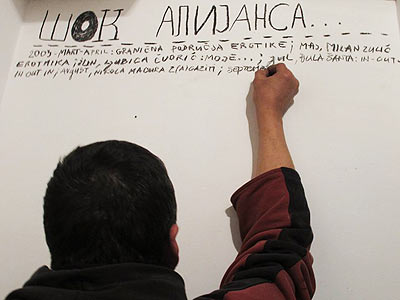 ШОК АЛИЈАНСА...
2009. МАРТ-АПРИЛ: GRANIČNA PODRUČJA EROTIKE; MAJ, MILAN ZULIĆ
EROTMIKA; JUN, LJUBICA ČUDRIĆ: MOJE...; JUL, ĐULA ŠANTA: IN-OUT-
IN OUT IN; AVGUST, NIKOLA MADURA; SEPTEMB